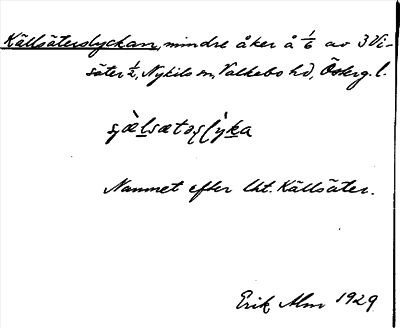 Källsäterslyckan, mindre åker å 1/6 av 3 Vi-
säter 1/2, Nykils sn, Valkebo hd, Österg. l.
Namnet efter lht. Källsäter.
Erik Alm 1929